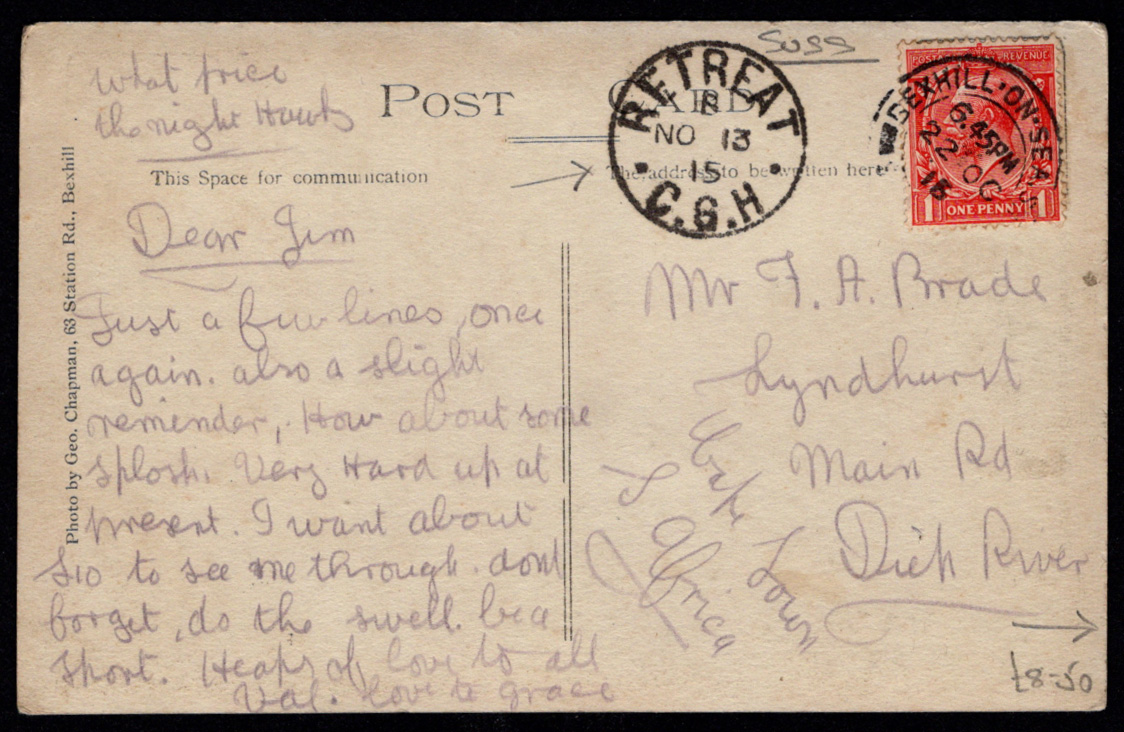 Suss
What price
the night Hawks
POST CARD
This Space for communication
The address to be written here
RETREAT
B
NO 13
15
C.G.H
BEXHILL-ON-SEA
6.45PM
22 OC
15
POSTAGE REVENUE
1 ONE PENNY 1
Photo by Geo. Chapman, 63 Station Rd., Bexhill
Dear Jim
Just a few lines, once
again. also a slight
reminder, How about some
splosh. Very Hard up at
present. I want about
£10 to see me through. dont
forget, do the swell. be a
sport. Heaps of love to all
Val. love to grace
Mr F. A. Brade
Lyndhurst
Main Rd
Diep River
Cape Town
S Africa
£8-50